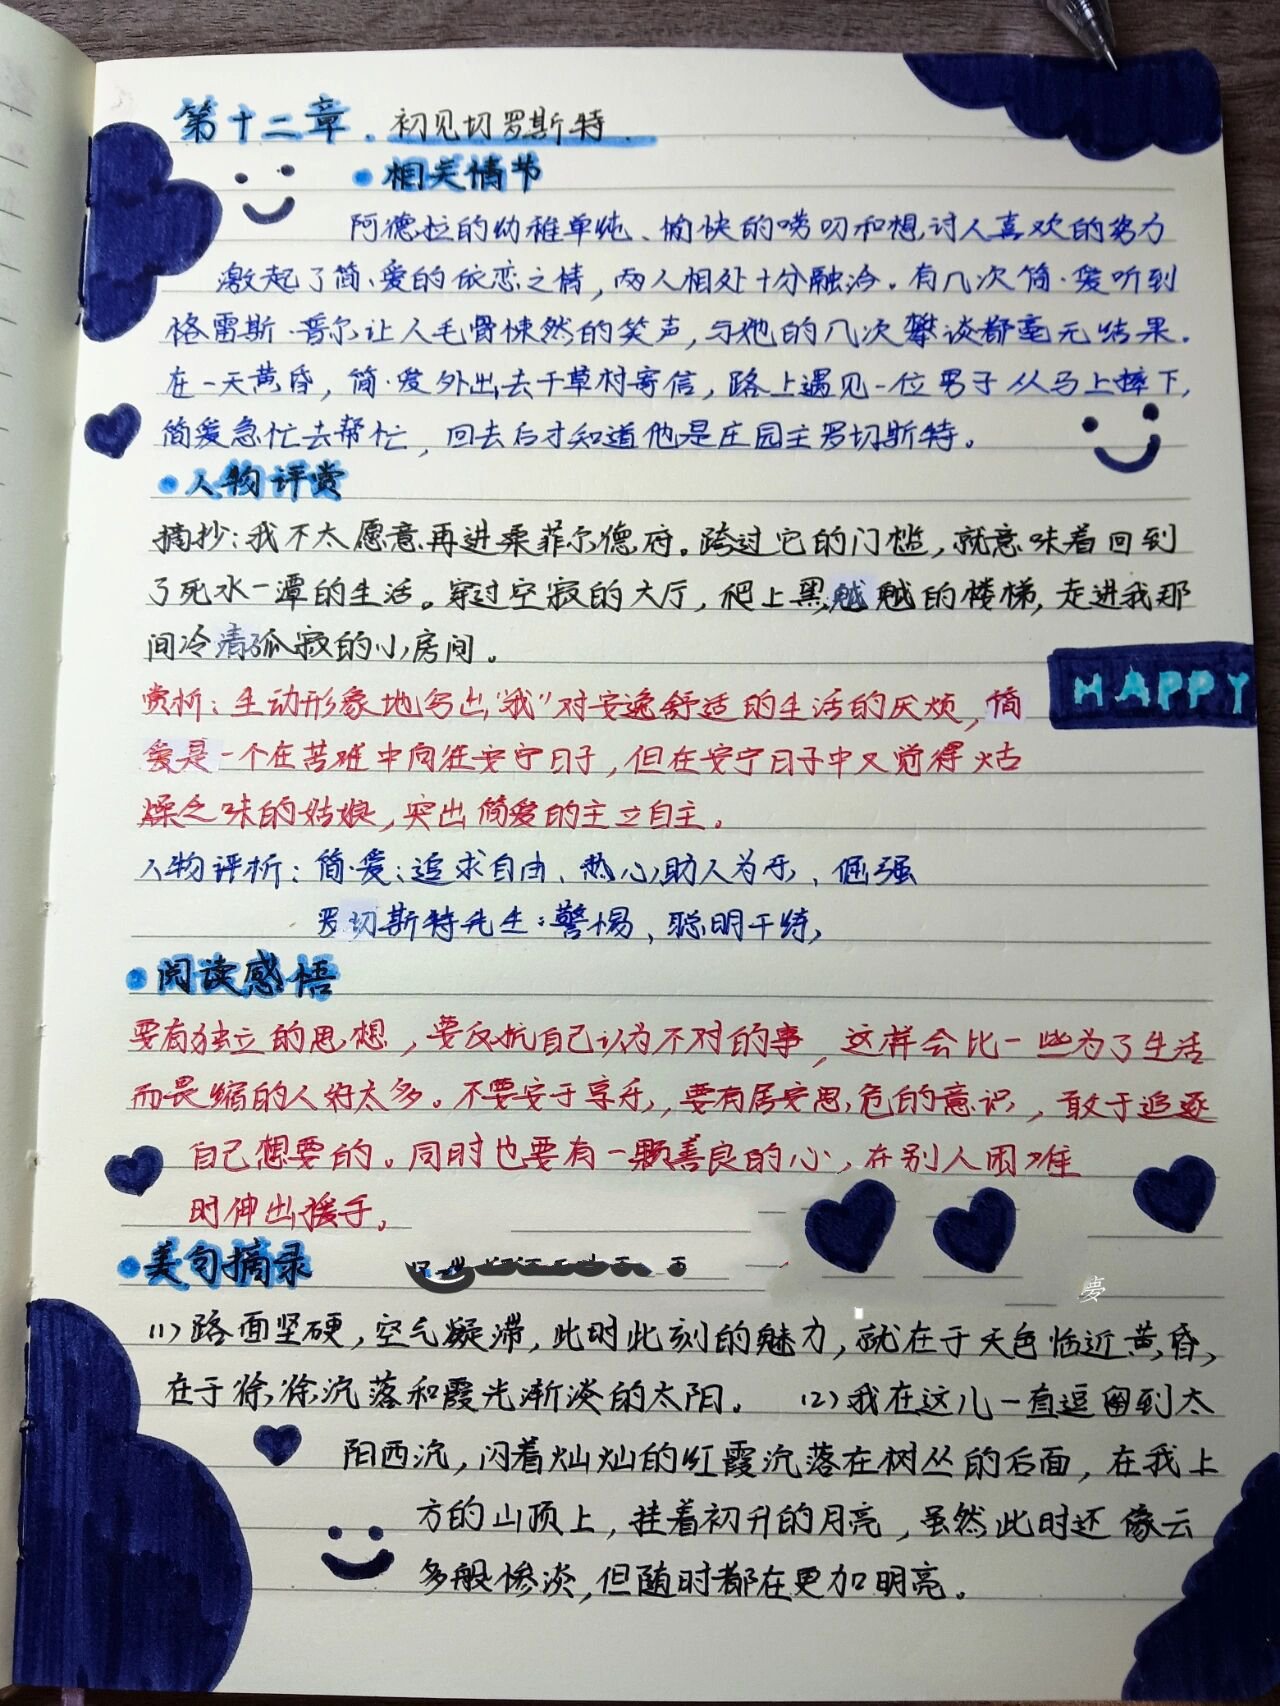 第十二章. 初见切罗斯特.
• 相关情节
阿德拉的幼稚单纯、愉快的唠叨和想讨人喜欢的努力
激起了简·爱的依恋之情，两人相处十分融洽。有几次简·爱听到
格雷斯·普尔让人毛骨悚然的笑声，与她的几次攀谈都毫无结果.
在一天黄昏，简·爱外出去干草村寄信，路上遇见一位男子从马上摔下,
简爱急忙去帮忙，回去后才知道他是庄园主罗切斯特。
• 人物评赏
摘抄：我不太愿意再进桑菲尔德府。跨过它的门槛，就意味着回到
了死水一潭的生活。穿过空寂的大厅，爬上黑越越的楼梯，走进我那
间冷清孤寂的小房间。
HAPPY
赏析：生动形象地写出"我"对安逸舒适的生活的厌烦，简
爱是一个在苦难中向往安宁日子，但在安宁日子中又觉得枯
燥乏味的姑娘，突出简爱的主立自主。
人物评析：简·爱：追求自由、热心助人为乐、倔强
罗切斯特先生：警惕、聪明干练,
• 阅读感悟
要有独立的思想，要反抗自己认为不对的事，这样会比一些为了生活
而畏缩的人好太多。不要安于享乐，要有居安思危的意识，敢于追逐
自己想要的。同时也要有一颗善良的心，在别人困难
时伸出援手。
• 美句摘录
夢
(1)路面坚硬，空气凝滞，此时此刻的魅力，就在于天色临近黄昏，
在于徐徐沉落和霞光渐淡的太阳。 (2)我在这儿一直逗留到太
阳西沉，闪着灿灿的红霞沉落在树丛的后面，在我上
方的山顶上，挂着初升的月亮，虽然此时还像云
多般惨淡，但随时都在更加明亮。